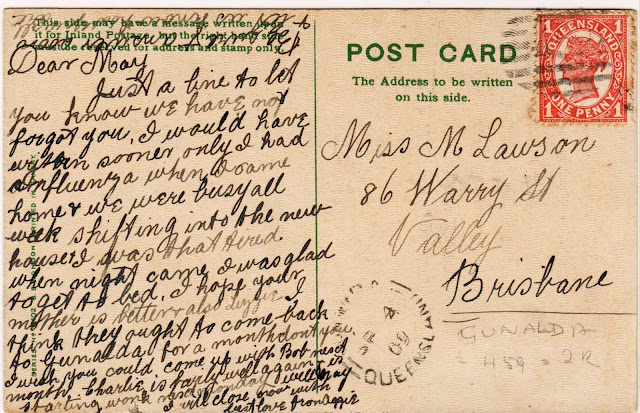 This side may have a message written upon
it for Inland Postage, but the right hand side
must be reserved for address and stamp only.
Dear May
Just a line to let
you know we have not
forgot you, I would have
written sooner only I had
Influenza when I came
home & we were busy all
week shifting into the new
house I was that tired
when night came I was glad
to get to bed, I hope your
mother is better & also Lizzie I
think they ought to come back
to Gunalda for a month dont you.
I wish you could come up with Bob next
month, Charlie is well again
starting work next Monday
I will close now with
best love from Aggie
POST CARD
The Address to be written
on this side.
QUEENSLAND
1 1
1 ONE PENNY 1
Miss M Lawson
86 Warry St
Valley
Brisbane
QUEENSLAND
GUNALDA